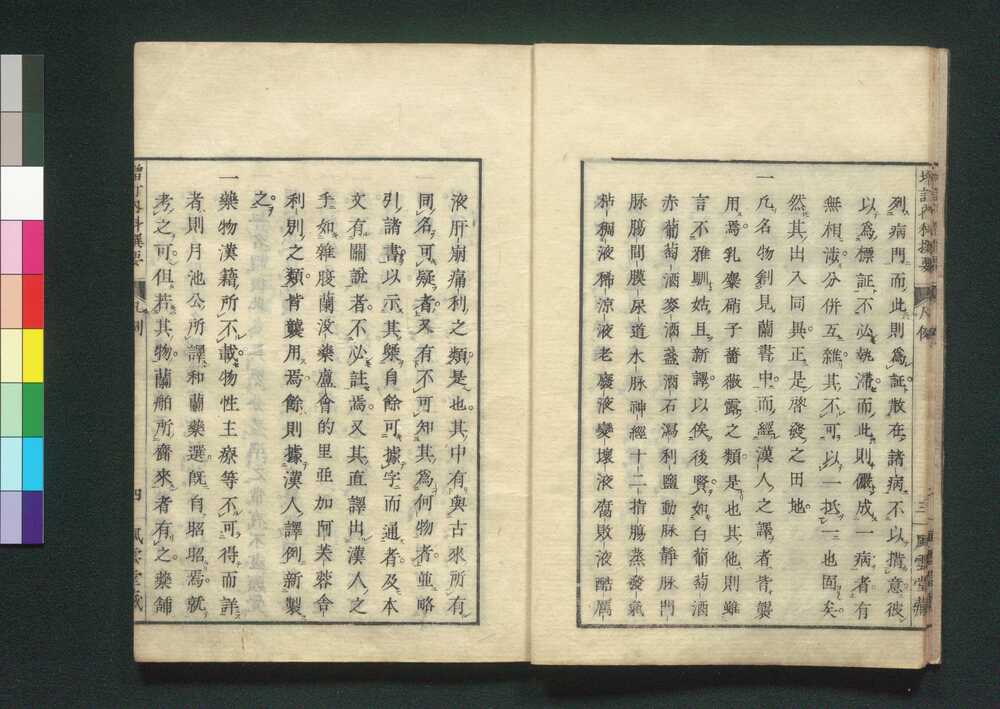 增訂內科撰要 凡例 三 風雲堂藏
列病門而此則為証散在諸病不以措意彼
以為標証不必執滯而此則儼成一病者有
無相涉分併互雜其不可以一抵一也固矣
然其出入同異正是啓發之田地
一凡名物創見蘭書中而經漢人之譯者皆襲
用焉乳麋硝子薔薇露之類是也其他則雖
言不雅馴姑且新譯以俟後賢如白葡萄酒
赤葡萄酒麥酒盞酒石瀉利鹽動脉靜脉門
脉腸間膜尿道水脉神經十二指腸蒸發氣
粘稠液稀涼液老廢液變壞液腐敗液酷厲
液肝崩痛利之類是也其中有與古來所有
同名可疑者又有不可知其為何物者並略
引諸書以示其槩自餘可據字而通者及本
文有關說者不必註焉又其直譯出漢人之
手如雜腹蘭沒藥蘆會的里亞加阿芙蓉會
利別之類皆襲用焉餘則據漢人譯例新製
之
一藥物漢籍所不載物性主療等不可得而詳
者則月池公所譯和蘭藥選既自昭昭焉就
考之可但若其物蘭舶所齎來者有之藥舖
增訂內科撰要 凡例 四 風雲堂藏